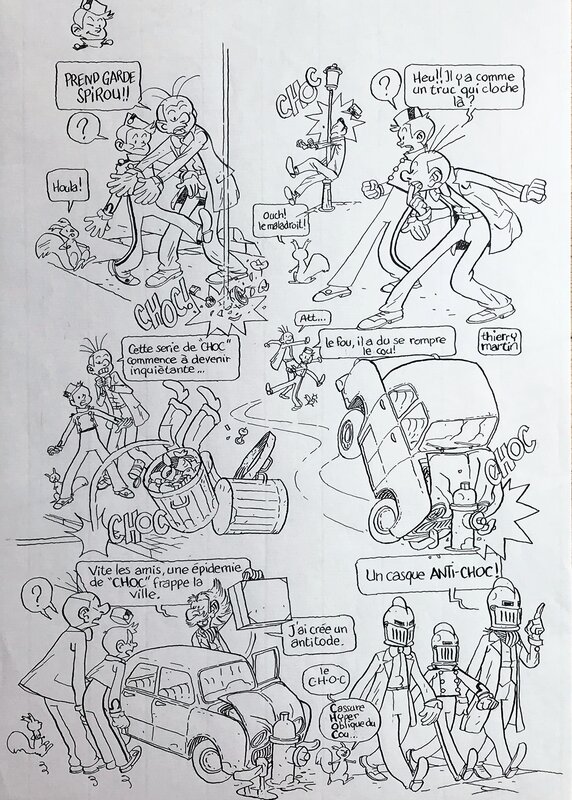 PREND GARDE
SPIROU!!
?
Houla!
CHOC!
CHOC
Ouch!
le maladroit!
?
Heu!! Il y a comme
un truc qui cloche
là?
thierry
martin
Cette serie de "CHOC"
commence à devenir
inquiètante...
CHOC
Att...
le fou, il a du se rompre
le cou!
CHOC
?
Vite les amis, une épidemie
de "CHOC" frappe la
ville.
J'ai crée un
antitode.
Un casque ANTI-CHOC!
le
C-H-O-C
Cassure
Hyper
Oblique du
Cou...